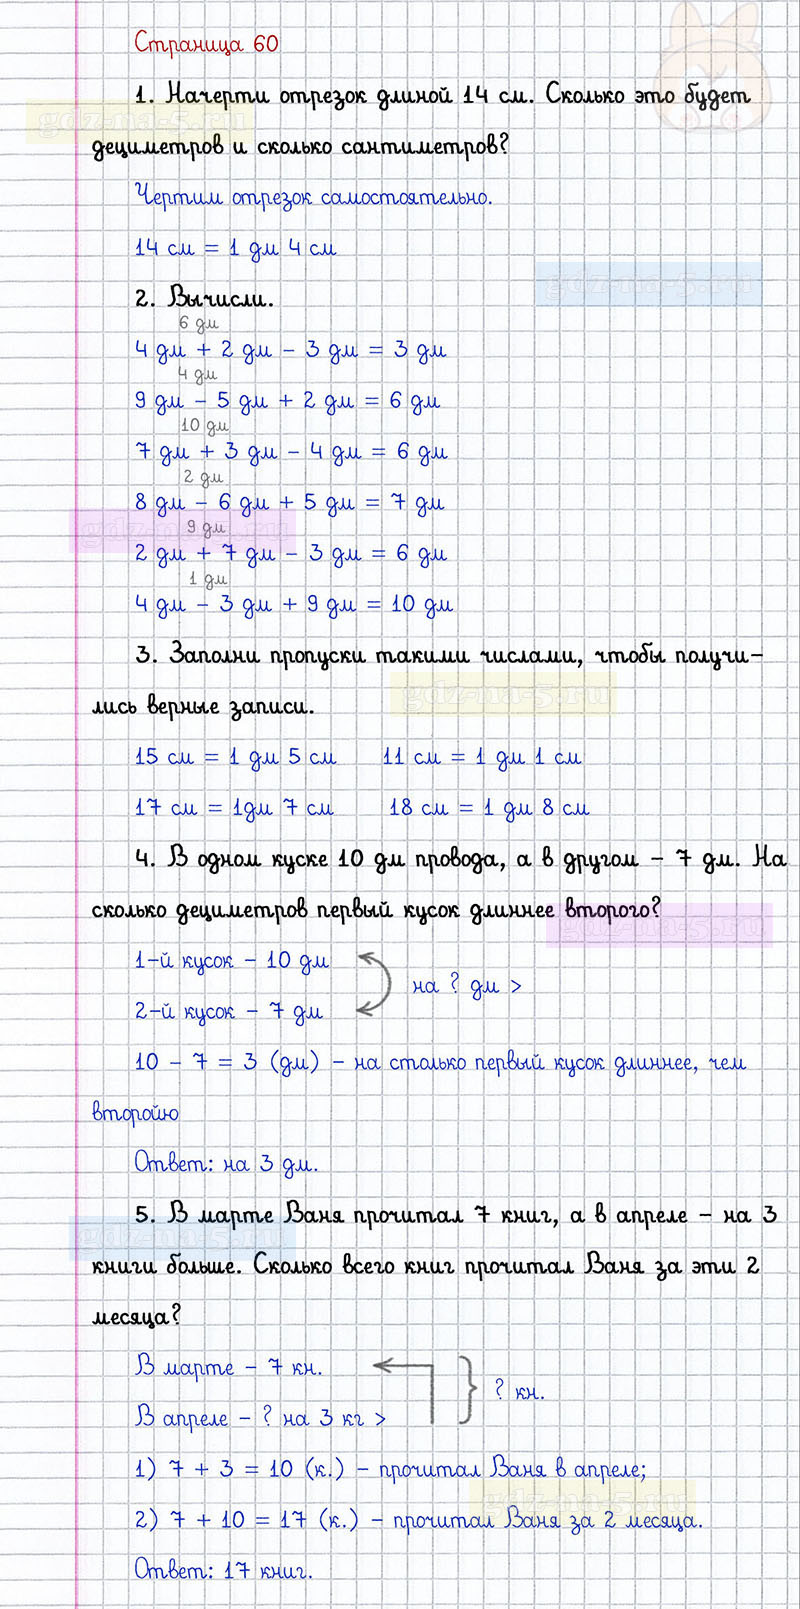 Страница 60
1. Начерти отрезок длиной 14 см. Сколько это будет
дециметров и сколько сантиметров?
gdz-na-5.ru
Чертим отрезок самостоятельно.
14 см = 1 дм 4 см
gdz-na-5.ru
2. Вычисли.
6 дм
4 дм + 2 дм – 3 дм = 3 дм
4 дм
9 дм – 5 дм + 2 дм = 6 дм
10 дм
7 дм + 3 дм – 4 дм = 6 дм
2 дм
8 дм – 6 дм + 5 дм = 7 дм
gdz-na-5.ru
9 дм
2 дм + 7 дм – 3 дм = 6 дм
1 дм
4 дм – 3 дм + 9 дм = 10 дм
3. Заполни пропуски такими числами, чтобы получи–
лись верные записи.
gdz-na-5.ru
15 см = 1 дм 5 см 11 см = 1 дм 1 см
17 см = 1дм 7 см 18 см = 1 дм 8 см
4. В одном куске 10 дм провода, а в другом – 7 дм. На
сколько дециметров первый кусок длиннее второго?
gdz-na-5.ru
1–й кусок – 10 дм
на ? дм >
2–й кусок – 7 дм
10 – 7 = 3 (дм) – на столько первый кусок длиннее, чем
второйю
Ответ: на 3 дм.
5. В марте Ваня прочитал 7 книг, а в апреле – на 3
gdz-na-5.ru
книги больше. Сколько всего книг прочитал Ваня за эти 2
месяца?
В марте – 7 кн.
? кн.
В апреле – ? на 3 кг >
1) 7 + 3 = 10 (к.) – прочитал Ваня в апреле;
gdz-na-5.ru
2) 7 + 10 = 17 (к.) – прочитал Ваня за 2 месяца.
Ответ: 17 книг.